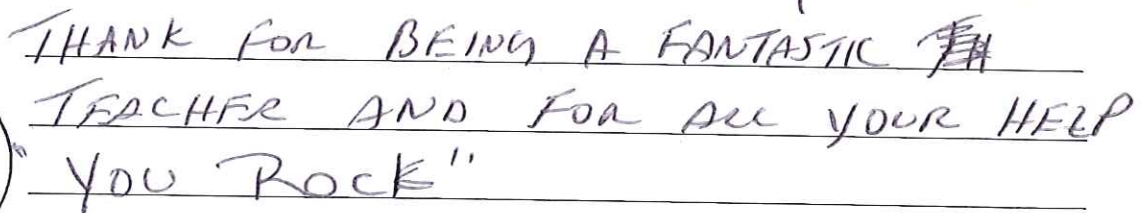 THANK FOR BEING A FANTASTIC
TEACHER AND FOR ALL YOUR HELP
"YOU ROCK"